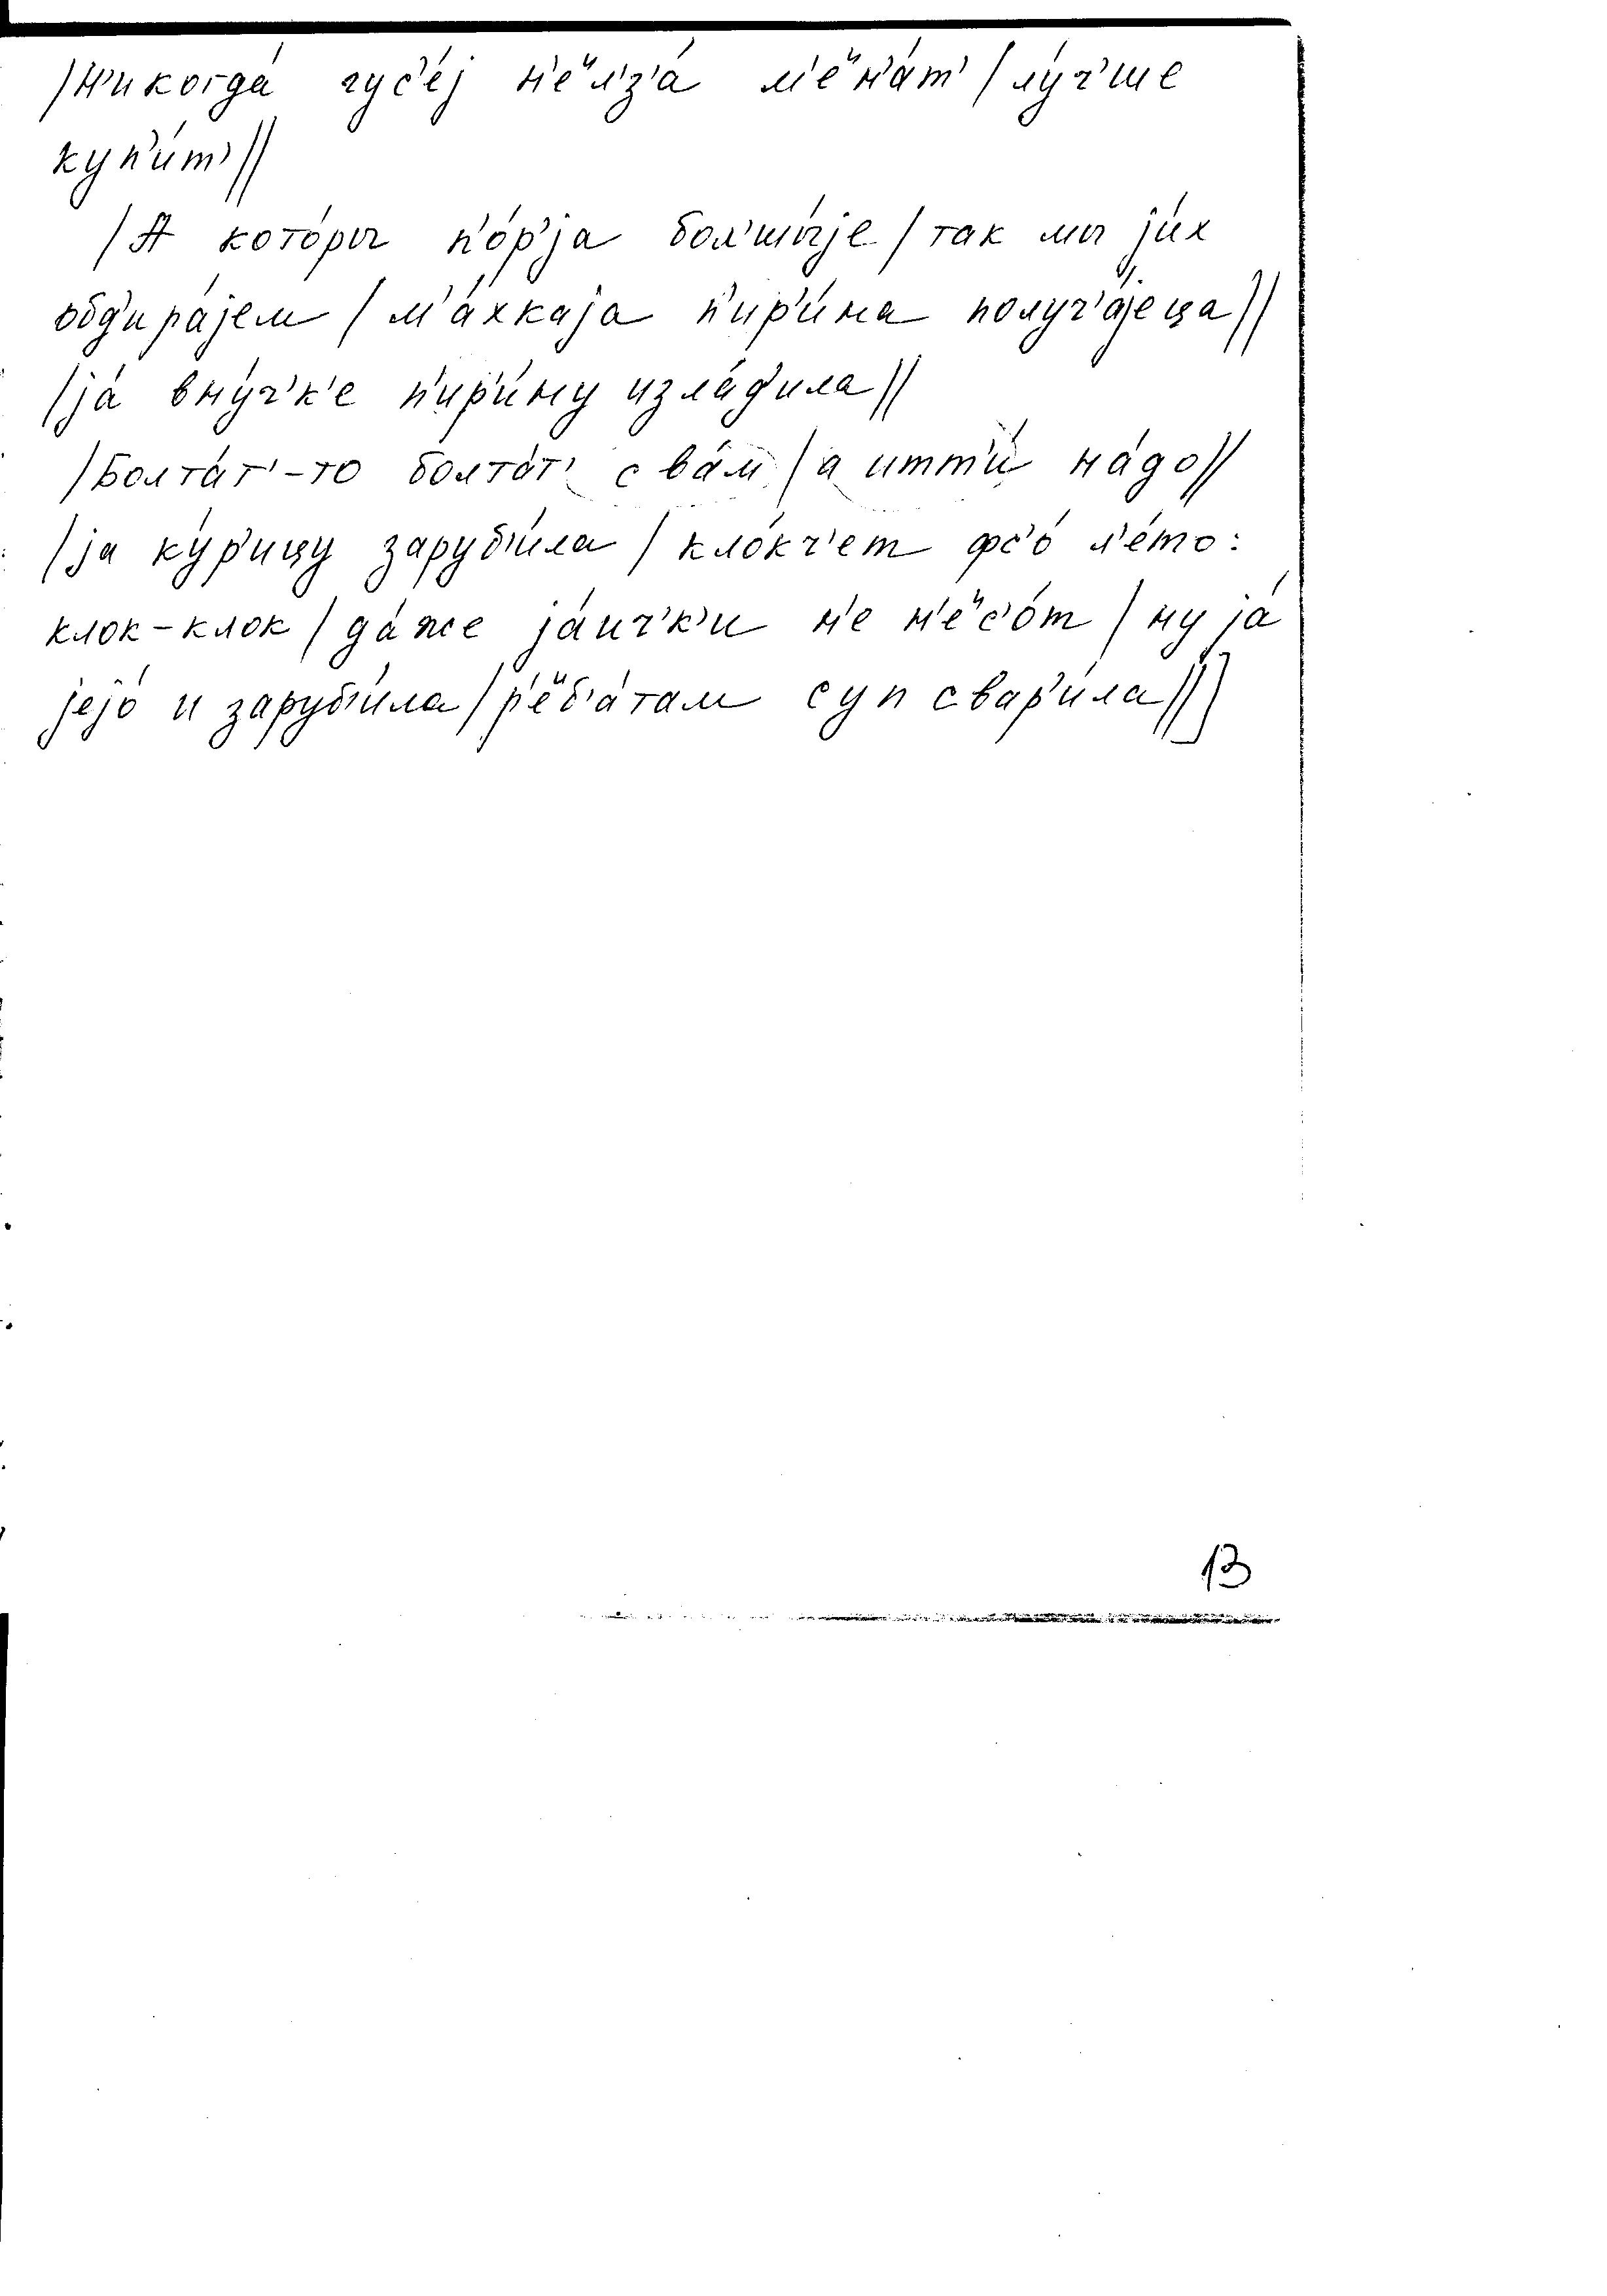 /Н'икогда́ гус'е́j н'еᵘл'з'а́ м'еᵘн'а́т' / лу́ч'ше
куп'и́т' //
/А кото́ры п'о́р'jа бол'шы́jе / так мы jи́х
обд'ира́jем / м'а́хкаjа п'ир'и́на получ'а́jеца //
/jа́ вну́ч'к'е п'ир'и́ну изла́д'ила //
/Болта́т'-то болта́т' с ва́м / а итт'и́ на́до //
/jа ку́р'ицу заруб'и́ла / кло́кч'ет фс'о́ л'е́то:
клок-клок / да́же jа́ич'к'и н'е н'еᵘс'о́т / ну jа́
jejо́ и заруб'и́ла / р'еᵘб'а́там суп свар'и́ла //]
13